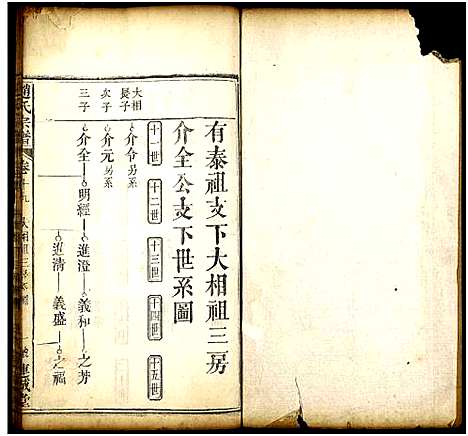 有泰祖支下大相祖三房
介全公支下世系圖
十一世
十二世
十三世
十四世
十五世
大相
長子
介令另系
次子
介元另系
三子
介全
明經
進澄
義和
之芳
進清
義盛
之福
趙氏宗譜
卷十九
大相祖三房